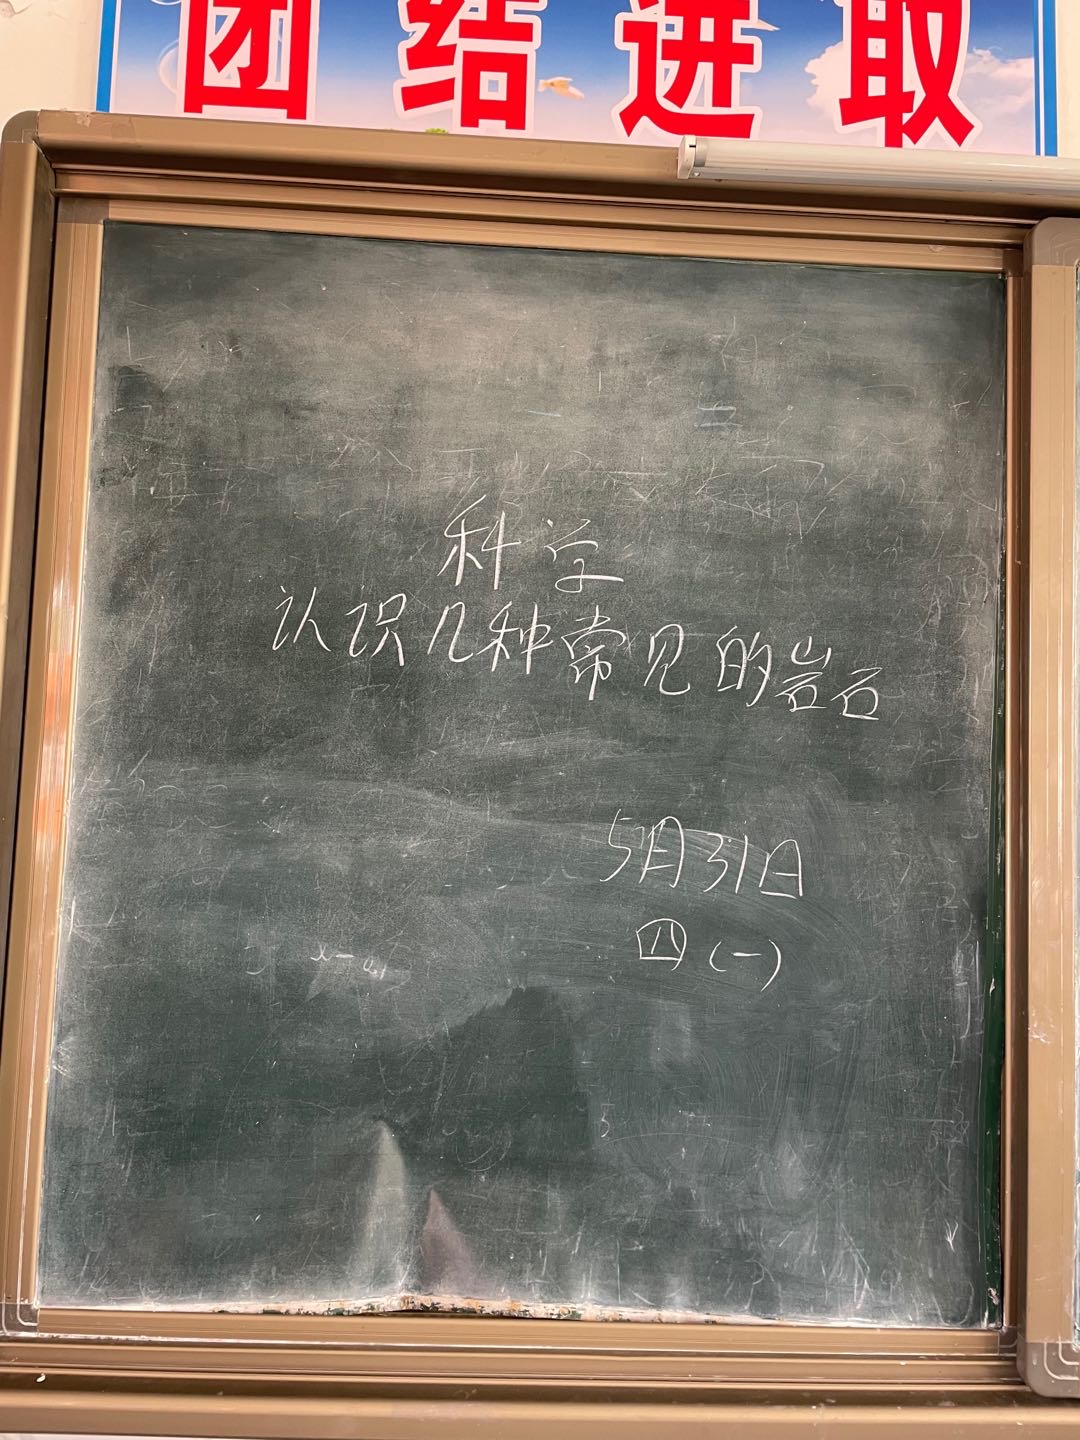 团结进取
科学
认识几种常见的岩石
5月31日
四(一)